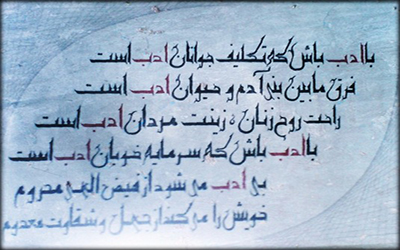 با ادب باش که تکلیف جوانان ادب است
فرق مابین بنی آدم و حیوان ادب است
راحت روح زنان و زینت مردان ادب است
با ادب باش که سرمایه خوبان ادب است
بی ادب می شود از فیض الهی محروم
خویش را می کند از جهل و شقاوت معدوم